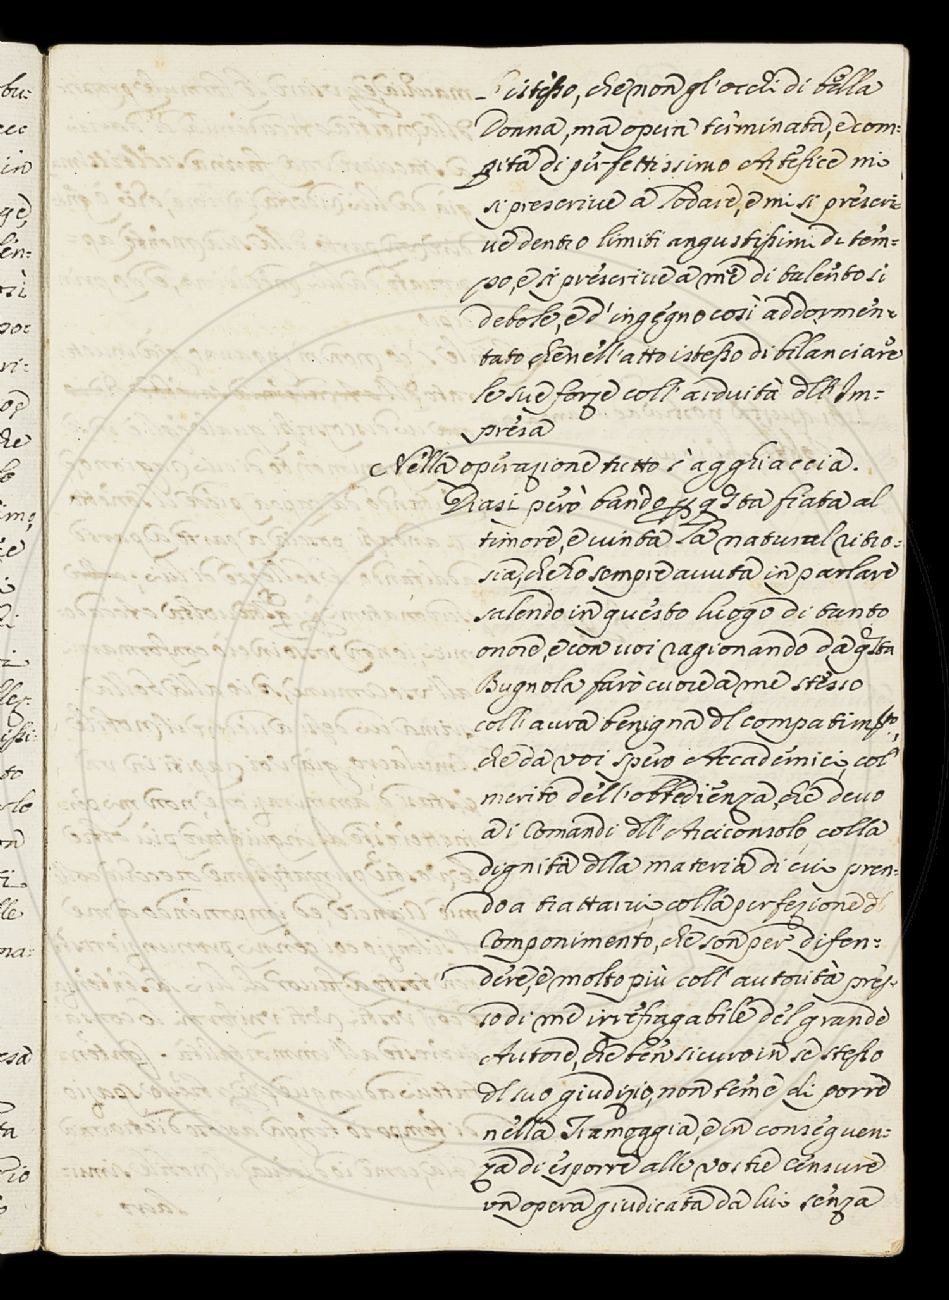 L'istesso, che non gl'occhi di bella
Donna, ma opera terminata, e com=
pita di perfettissimo Artefice mi
si prescrive a lodare, e mi si prescri=
ve dentro limiti angustissimi di tem=
po, e si prescrive a me di talento sì
debole, e d'ingegno così addormen=
tato che nell'atto istesso di bilanciare
le sue forze coll'arduità dll'Im=
presa
Nella operazione tutto s'agghiaccia.
Diasi però bando p qsta fiata al
timore, e vinta la natural ritro=
sia, che ho sempre avuta in parlare
salendo in questo luogo di tanto
onore, e con voi ragionando da qsta
Bugnola farò cuore a me stesso
coll'aura benigna dl compatimto,
che da voi spero Accademici, col
merito dell'obbedienza, che devo
ai Comandi dll'Arciconsolo, colla
dignità dlla materia di cui pren=
do a trattarvi, colla perfezione dl
Componimento, che son per difen=
dere, e molto più coll'autorità pres=
so di me irrefragabile del grande
Autore, che ben sicuro in se stesso
dl suo giudizio, non teme di porre
nella Tramoggia, e in conseguen=
za di esporre alle vostre censure
un opera giudicata da lui senza